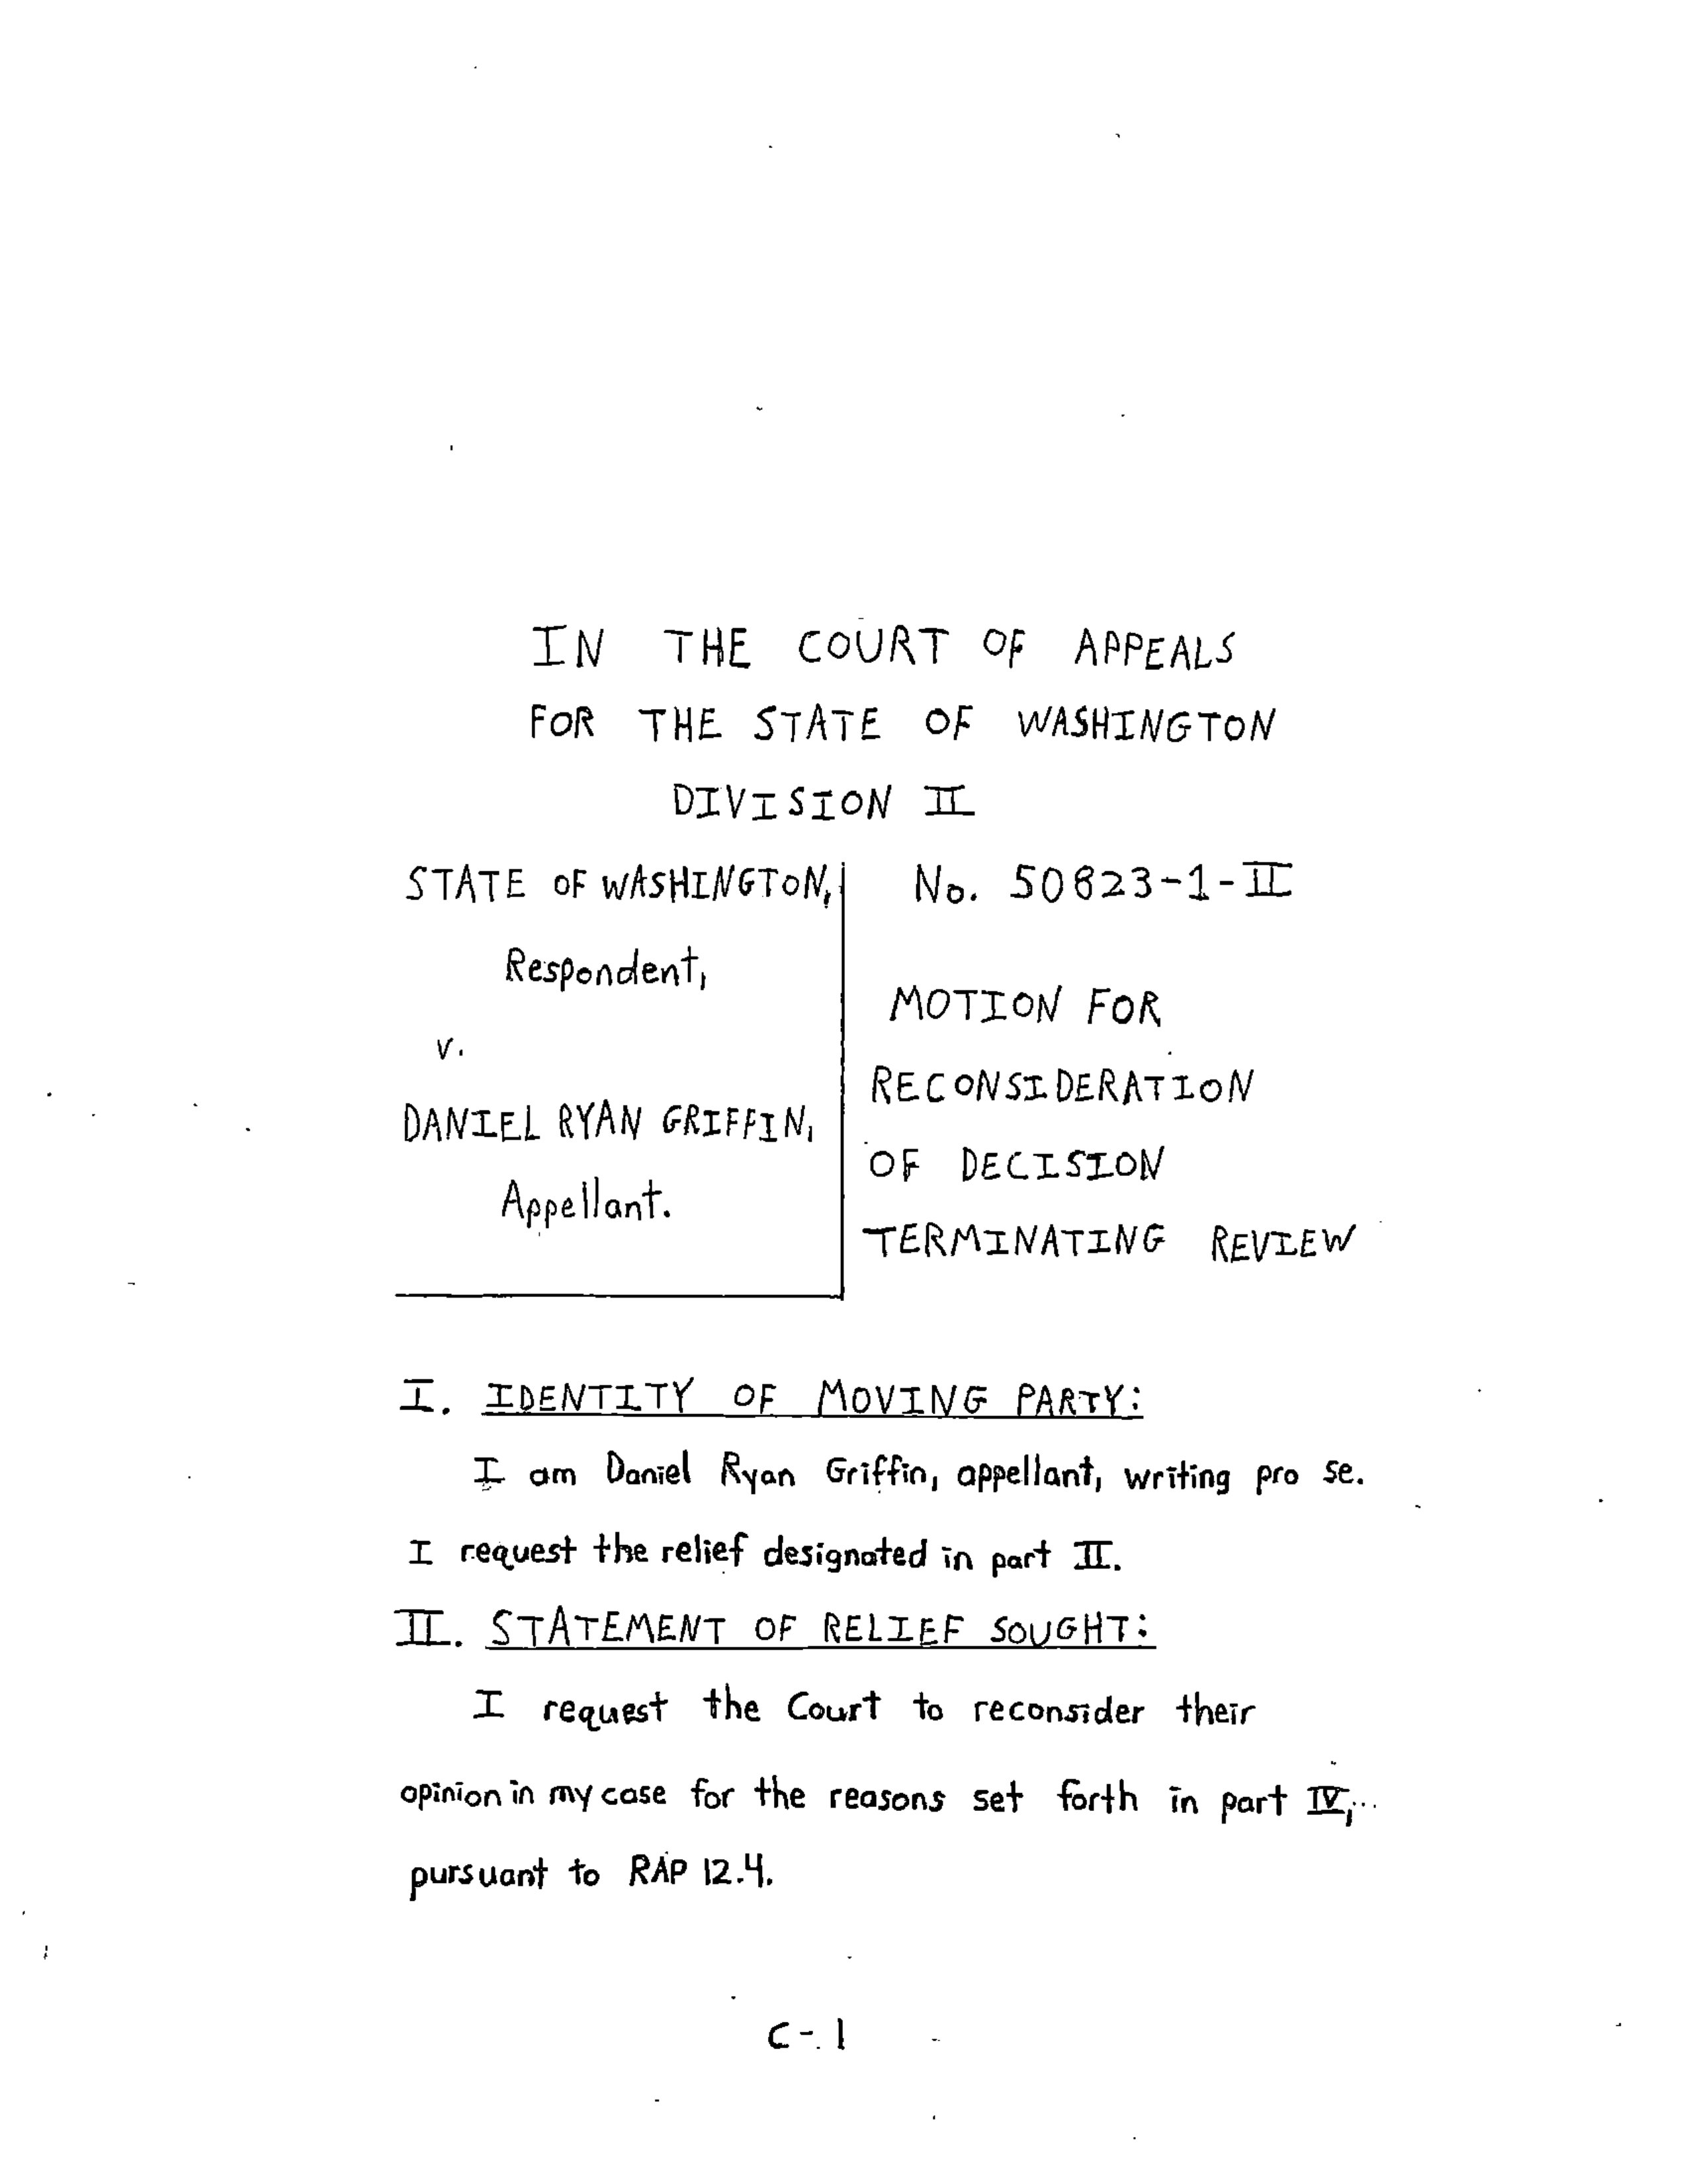 IN THE COURT OF APPEALS
FOR THE STATE OF WASHINGTON
DIVISION II
STATE OF WASHINGTON,
Respondent,
v.
DANIEL RYAN GRIFFIN,
Appellant.
No. 50823-1-II
MOTION FOR
RECONSIDERATION
OF DECISION
TERMINATING REVIEW
I. IDENTITY OF MOVING PARTY:
I am Daniel Ryan Griffin, appellant, writing pro se.
I request the relief designated in part II.
II. STATEMENT OF RELIEF SOUGHT:
I request the Court to reconsider their
opinion in my case for the reasons set forth in part IV,
pursuant to RAP 12.4.
C-1